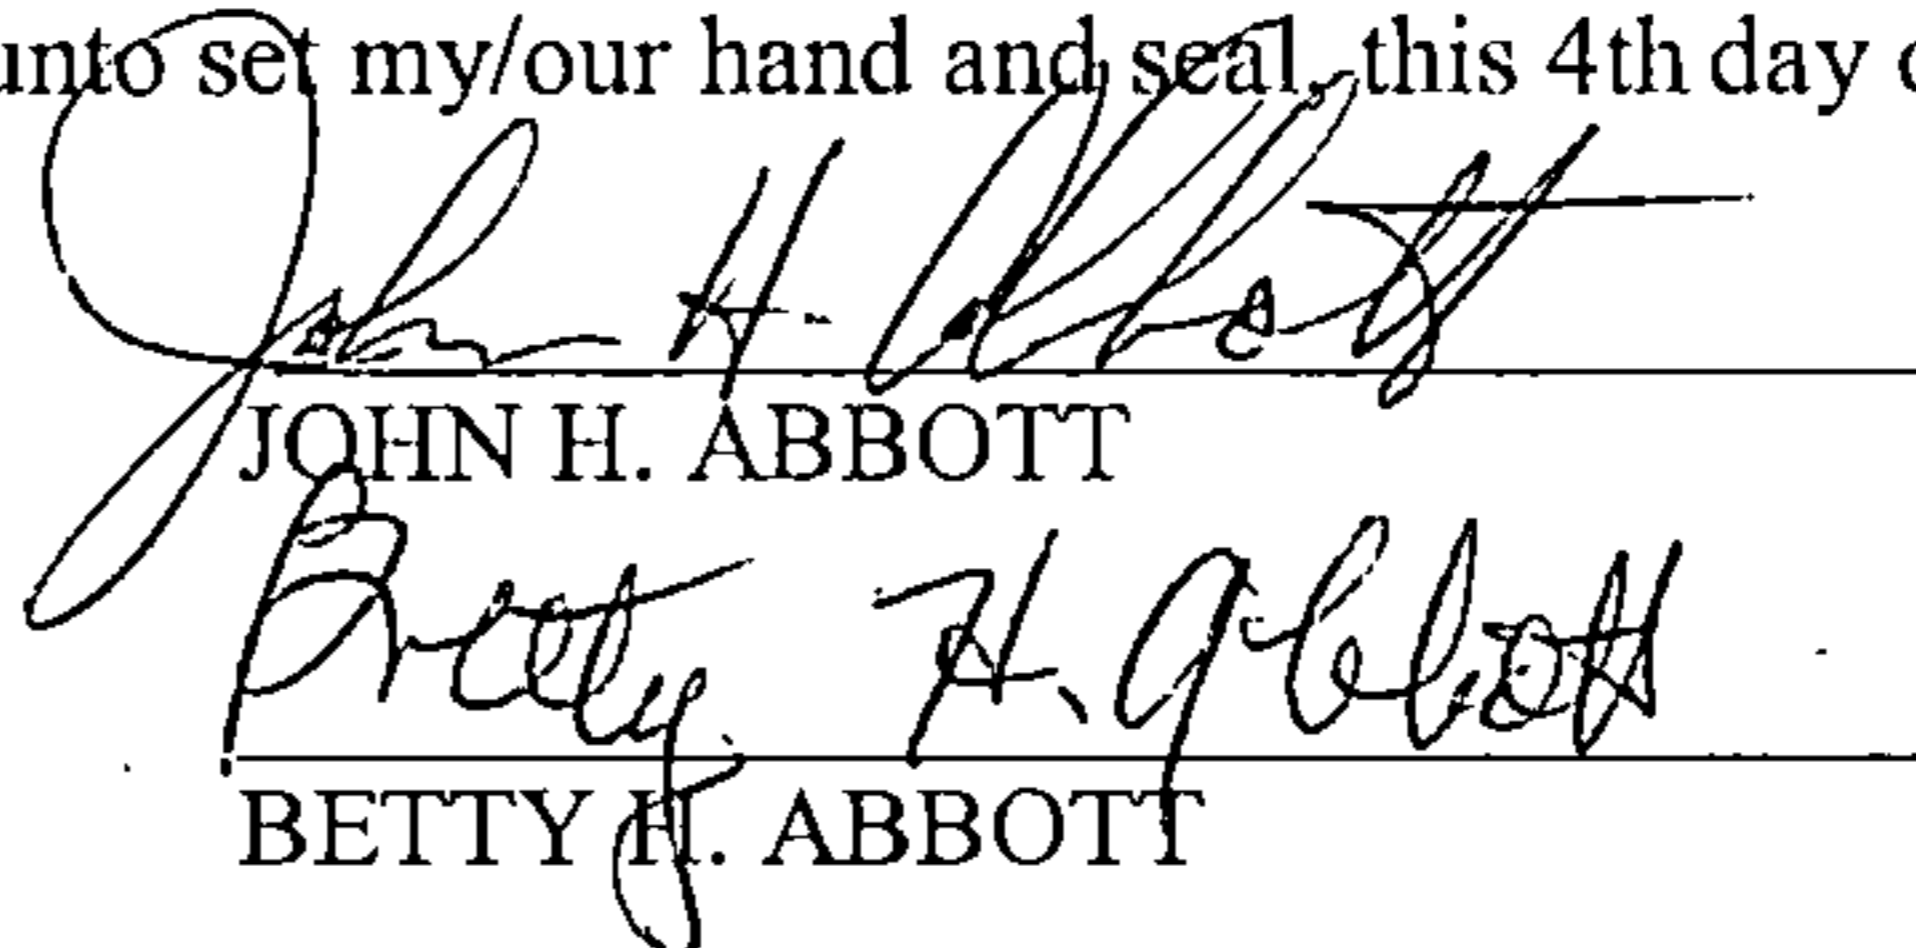 unto set my/our hand and seal, this 4th day
John H. Abbott
JOHN H. ABBOTT
Betty H. Abbott
BETTY H. ABBOTT